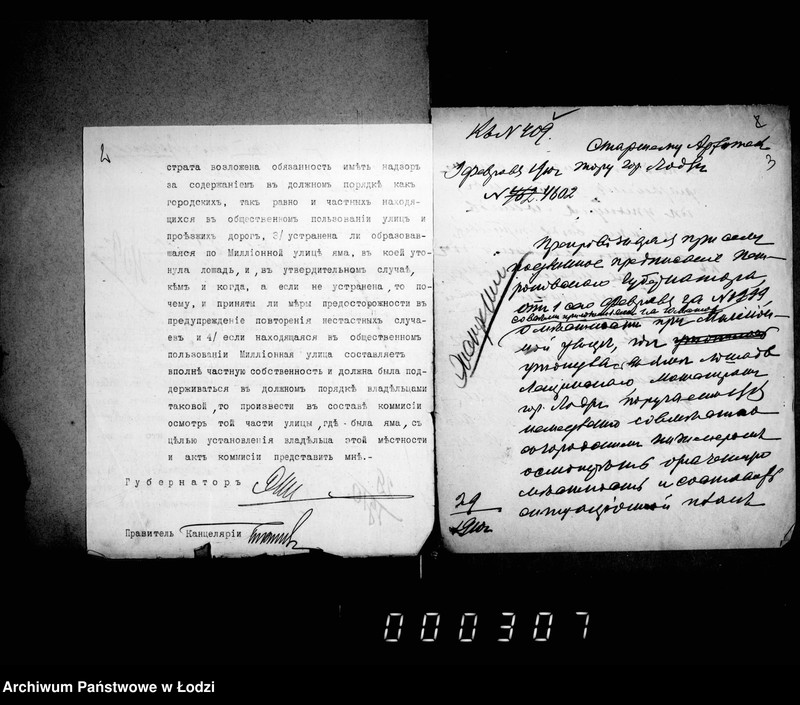 2
страта возложена обязанность имѣть надзоръ
за содержаніемъ въ должномъ порядкѣ какъ
городскихъ, такъ равно и частныхъ находя-
щихся въ общественномъ пользованіи улицъ и
проѣзжихъ дорогъ, 3/ устранена ли образовав-
шаяся по Милліонной улицѣ яма, въ коей уто-
нула лошадь, и, въ утвердительномъ случаѣ,
кѣмъ и когда, а если не устранена, то по-
чему, и приняты ли мѣры предосторожности въ
предупрежденіе повторенія нестастныхъ случа-
евъ и 4/ если находящаяся въ общественномъ
пользованіи Милліонная улица составляетъ
вполнѣ частную собственность и должна была под-
держиваться въ должномъ порядкѣ владѣльцами
таковой, то произвести въ составѣ коммисіи
осмотръ той части улицы, гдѣ была яма, съ
цѣлью установленія владѣльца этой мѣстности
и актъ комисіи представить мнѣ.-
Губернаторъ
Правитель Канцеляріи
Къ N 409.
Старшему Архитек
тору гор. Лодзи
N 4602
3
Препровождая при семъ
подлинное предписаніе Пет-
роковскаго Губернатора
отъ 1 сего Февраля за N
мѣстности при Милліон-
ной улицѣ, гдѣ
утонула въ ямѣ лошадь
гор. Лодзи поручаетъ
немедленно совмѣстно
съ городскимъ инженеромъ
осмотрѣть означенную
мѣстность и составить
ситуаціонный планъ
29
000307
Archiwum Państwowe w Łodzi